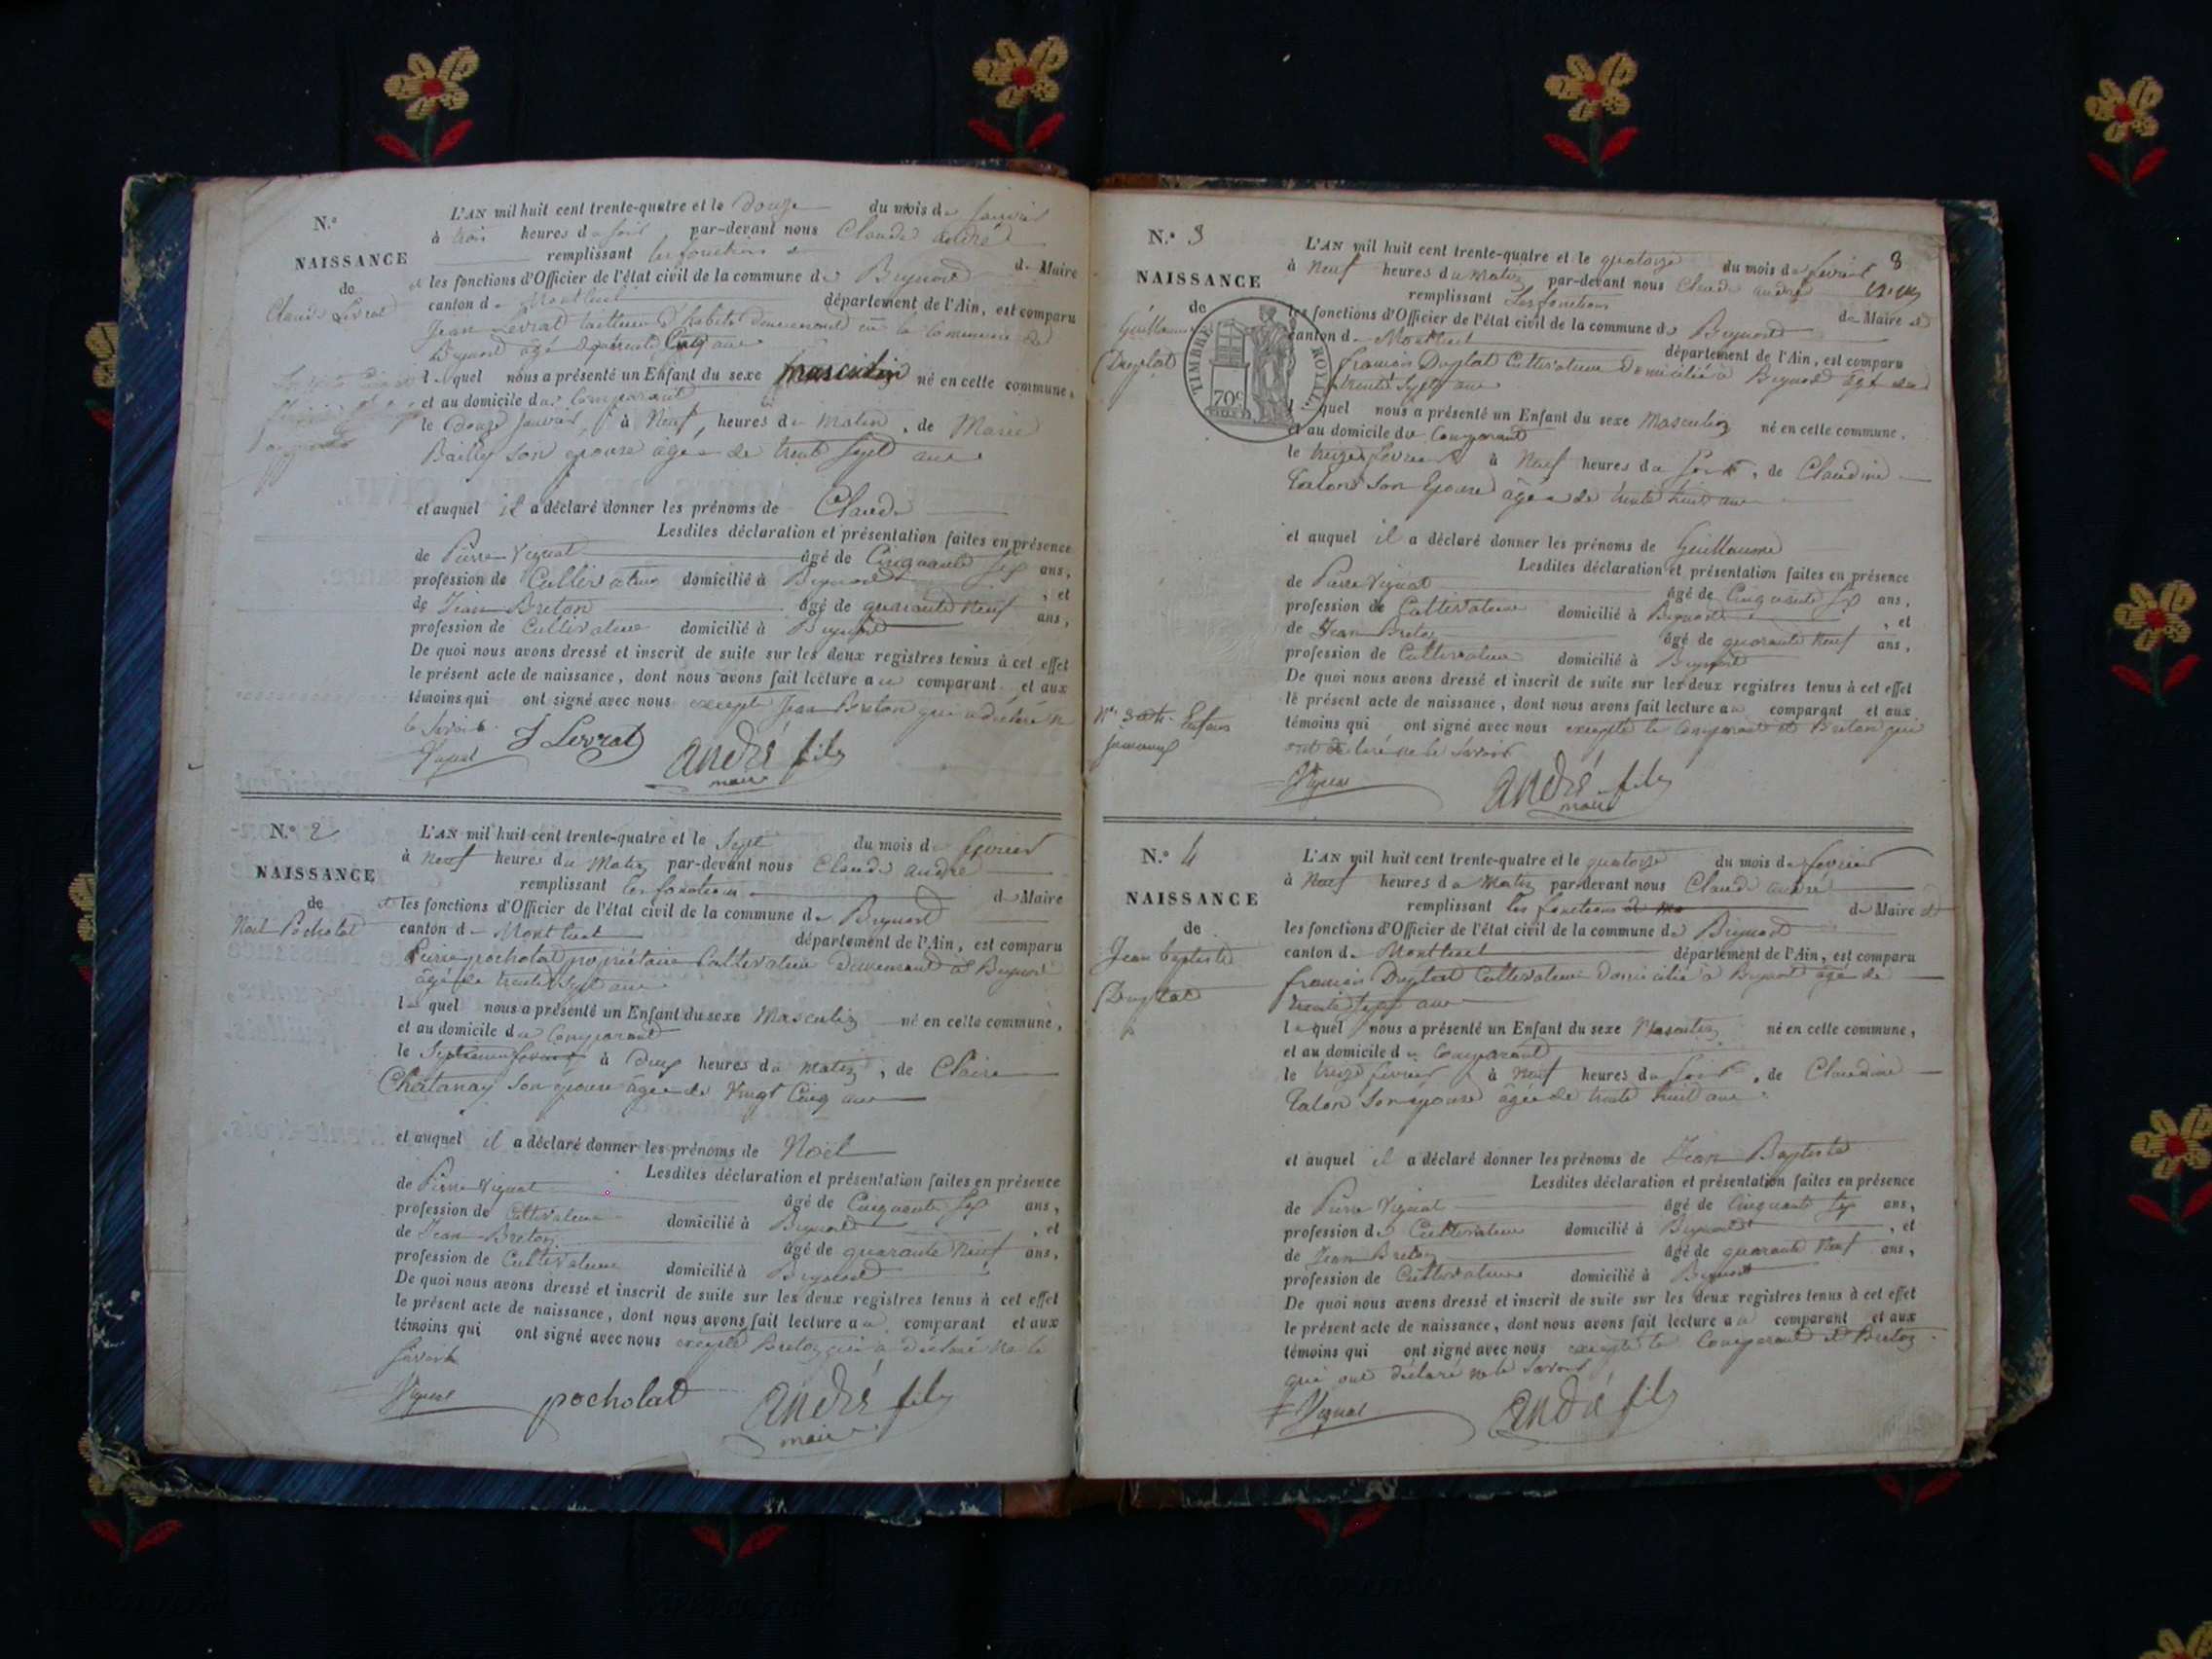 N.°
NAISSANCE
de
Claude Levrat
L'AN mil huit cent trente-quatre et le douze du mois de Janvier
à trois heures du soir par-devant nous Claude André
remplissant les fonctions
et les fonctions d'Officier de l'état civil de la commune de de Maire
canton de Montluel département de l'Ain, est comparu
Jean Levrat la commune de
âgé de trente Cinq ans
lequel nous a présenté un Enfant du sexe masculin né en cette commune,
et au domicile du Comparant
le douze Janvier, à Neuf, heures du Matin, de Marie
Bailly son epouse âgée de trente sept ans
et auquel il a déclaré donner les prénoms de Claude
Lesdites déclaration et présentation faites en présence
de Pierre Vignat âgé de Cinquante six ans,
profession de Cultivateur domicilié à , et
de Jean Breton âgé de quarante Neuf ans,
profession de Cultivateur domicilié à
De quoi nous avons dressé et inscrit de suite sur les deux registres tenus à cet effet
le présent acte de naissance, dont nous avons fait lecture au comparant et aux
témoins qui ont signé avec nous excepté Jean Breton qui a déclaré ne
le savoir
Vignat J Levrat André fils
maire
N.° 2
NAISSANCE
de
Noël Pocholat
L'AN mil huit cent trente-quatre et le Sept du mois de fevrier
à Neuf heures du Matin par-devant nous Claude André
remplissant les fonctions de Maire
et les fonctions d'Officier de l'état civil de la commune de
canton de Montluel département de l'Ain, est comparu
Pierre pocholat propriétaire Cultivateur demeurant à
âgé de trente Sept ans
lequel nous a présenté un Enfant du sexe Masculin né en cette commune,
et au domicile du Comparant
le fevrier à deux heures du matin, de Claire
Chatanay son epouse âgée de Vingt Cinq ans
et auquel il a déclaré donner les prénoms de Noël
Lesdites déclaration et présentation faites en présence
de Pierre Vignat âgé de Cinquante Six ans,
profession de Cultivateur domicilié à , et
de Jean Breton âgé de quarante Neuf ans,
profession de Cultivateur domicilié à
De quoi nous avons dressé et inscrit de suite sur les deux registres tenus à cet effet
le présent acte de naissance, dont nous avons fait lecture au comparant et aux
témoins qui ont signé avec nous excepté Breton qui a déclaré ne le
savoir
Vignat pocholat André fils
maire
8
N.° 3
NAISSANCE
de
Guillaume
Duplat
TIMBRE ROYAL
70c
L'AN mil huit cent trente-quatre et le quatorze du mois de fevrier
à Neuf heures du Matin par-devant nous Claude André
remplissant Les fonctions de Maire et
les fonctions d'Officier de l'état civil de la commune de
canton de Montluel département de l'Ain, est comparu
françois Duplat Cultivateur domicilié à âgé de
trente Sept ans
lequel nous a présenté un Enfant du sexe Masculin né en cette commune,
et au domicile du Comparant
le treize fevrier à Neuf heures du Soir, de Claudine
Talon Son Epouse âgée de trente huit ans
et auquel il a déclaré donner les prénoms de Guillaume
Lesdites déclaration et présentation faites en présence
de Pierre Vignat âgé de Cinquante Six ans,
profession de Cultivateur domicilié à , et
de Jean Breton âgé de quarante Neuf ans,
profession de Cultivateur domicilié à
De quoi nous avons dressé et inscrit de suite sur les deux registres tenus à cet effet
le présent acte de naissance, dont nous avons fait lecture au comparant et aux
témoins qui ont signé avec nous excepté le Comparant et Breton qui
ont déclaré ne le Savoir
Vignat André fils
maire
Enfans
jumeaux
N.° 4
NAISSANCE
de
Jean baptiste
Duplat
L'AN mil huit cent trente-quatre et le quatorze du mois de fevrier
à Neuf heures du Matin par-devant nous Claude André
remplissant les fonctions de Maire et
les fonctions d'Officier de l'état civil de la commune de
canton de Montluel département de l'Ain, est comparu
françois Duplat Cultivateur domicilié à âgé de
trente Sept ans
lequel nous a présenté un Enfant du sexe Masculin né en cette commune,
et au domicile du Comparant
le treize fevrier à Neuf heures du Soir, de Claudine
Talon Son epouse âgée de trente huit ans
et auquel il a déclaré donner les prénoms de Jean Baptiste
Lesdites déclaration et présentation faites en présence
de Pierre Vignat âgé de Cinquante Six ans,
profession de Cultivateur domicilié à , et
de Jean Breton âgé de quarante Neuf ans,
profession de Cultivateur domicilié à
De quoi nous avons dressé et inscrit de suite sur les deux registres tenus à cet effet
le présent acte de naissance, dont nous avons fait lecture au comparant et aux
témoins qui ont signé avec nous excepté le Comparant et Breton
qui ont déclaré ne le Savoir
Vignat André fils